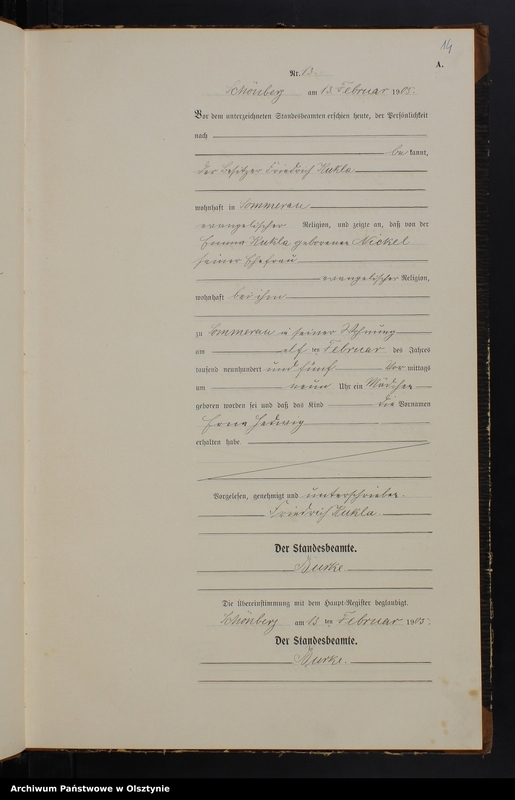 14
A.
Nr. 13.
Schönberg am 13 Februar 1905.
Vor dem unterzeichneten Standesbeamten erschien heute, der Persönlichkeit
nach
be kannt,
der Besitzer Friedrich Kukla
wohnhaft in Sommerau
evangelischer Religion, und zeigte an, daß von der
Emma Kukla geborenen Nickel
seiner Ehefrau
evangelischer Religion,
wohnhaft bei ihm
zu Sommerau in seiner Wohnung
am elf ten Februar des Jahres
tausend neunhundert und fünf Vor mittags
um neun Uhr ein Mädchen
geboren worden sei und daß das Kind die Vornamen
Erna Hedwig
erhalten habe.
Vorgelesen, genehmigt und unterschrieben.
Friedrich Kukla.
Der Standesbeamte.
Burke
Die Übereinstimmung mit dem Haupt-Register beglaubigt.
Schönberg am 13 ten Februar 1905.
Der Standesbeamte.
Burke.
Archiwum Państwowe w Olsztynie